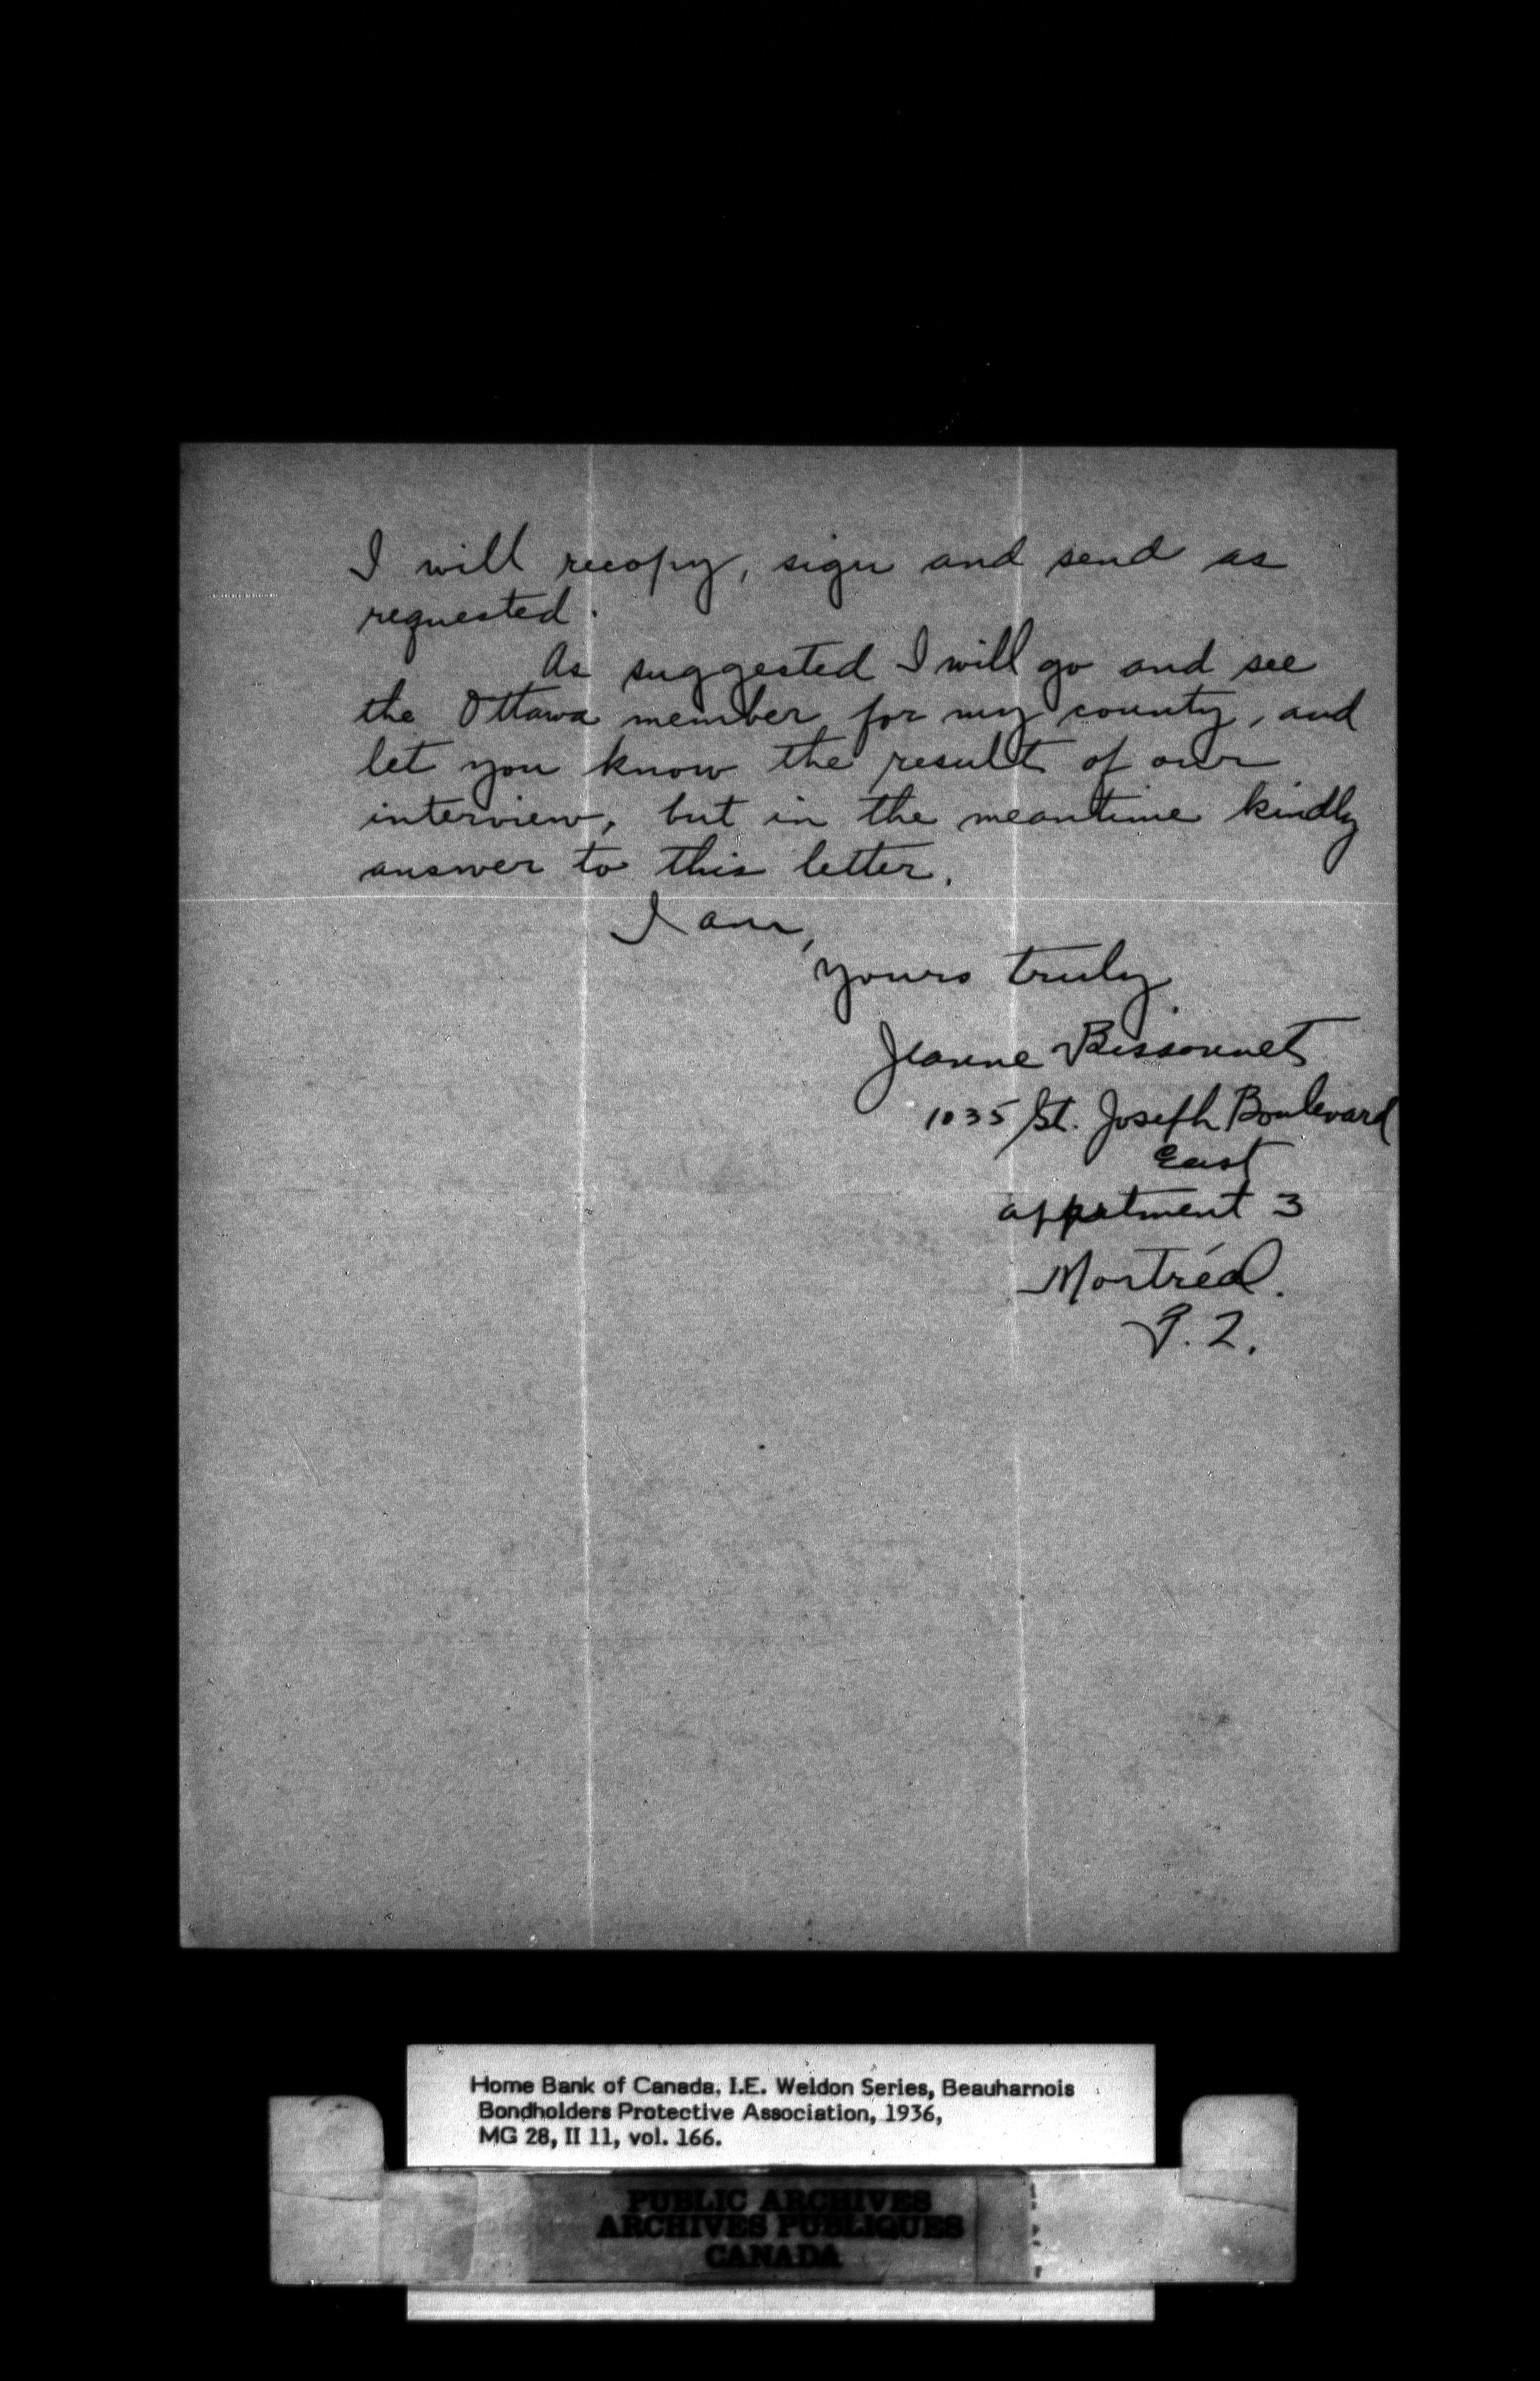 I will recopy, sign and send as
requested.
As suggested I will go and see
the Ottawa member for my county, and
let you know the result of our
interview, but in the meantime kindly
answer to this letter.
I am,
yours truly.
Jeanne Bissonnet
1035 St. Joseph Boulevard
East
appartment 3
Montréal.
P. Q.
Home Bank of Canada. I.E. Weldon Series, Beauharnois
Bondholders Protective Association, 1936,
MG 28, II 11, vol. 166.
PUBLIC ARCHIVES
ARCHIVES PUBLIQUES
CANADA